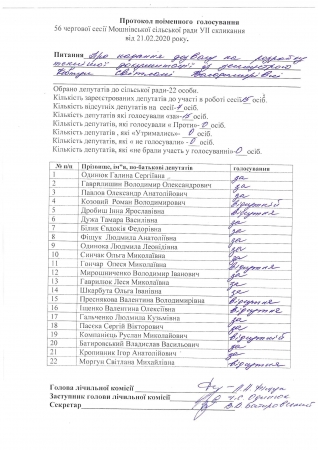 Протокол поіменного голосування
56 чергової сесії Мошнівської сільської ради УІІ скликання
від 21.02.2020 року.
Питання Про надання дозволу на розробку
технічної документації із
Світлані Володимирівні
Обрано депутатів до сільської ради-22 особи.
Кількість зареєстрованих депутатів до участі в роботі сесії осіб.
Кількість відсутніх депутатів на сесії- осіб.
Кількість депутатів, які голосували «за»- осіб.
Кількість депутатів, які голосували « Проти»- 0 осіб.
Кількість депутатів, які «Утримались» 0 осіб.
Кількість депутатів, які « не голосували»- 0 осіб.
Кількість депутатів, які «не брали участь у голосуванні»- 0 осіб.
№ п/п Прізвище, ім"я, по-батькові депутатів голосування
1 Одинок Галина Сергіївна за
2 Гаврилишин Володимир Олександрович за
3 Павлов Олександр Анатолійович за
4 Козовий Роман Володимирович відсутній
5 Дробиш Інна Ярославівна відсутня
6 Дужа Тамара Василівна за
7 Білик Євдокія Федорівна за
8 Фіщук Людмила Анатоліївна за
9 Одинока Людмила Леонідівна за
10 Синчак Ольга Миколаївна за
11 Гончар Олеся Миколаївна за
12 Мирошниченко Володимир Іванович за
13 Гаврилюк Леся Миколаївна за
14 Шкарбута Ольга Іванівна за
15 Преснякова Валентина Володимирівна відсутня
16 Іщенко Валентина Олексіївна відсутня
17 Гальченко Людмила Кузьмівна за
18 Пасєка Сергій Вікторович за
19 Компанієць Руслан Миколайович відсутній
20 Батировський Владислав Васильович за
21 Кропивник Ігор Анатолійович за
22 Моргун Світлана Михайлівна відсутня
Голова лічильної комісії
Заступник голови лічильної комісії
Секретар